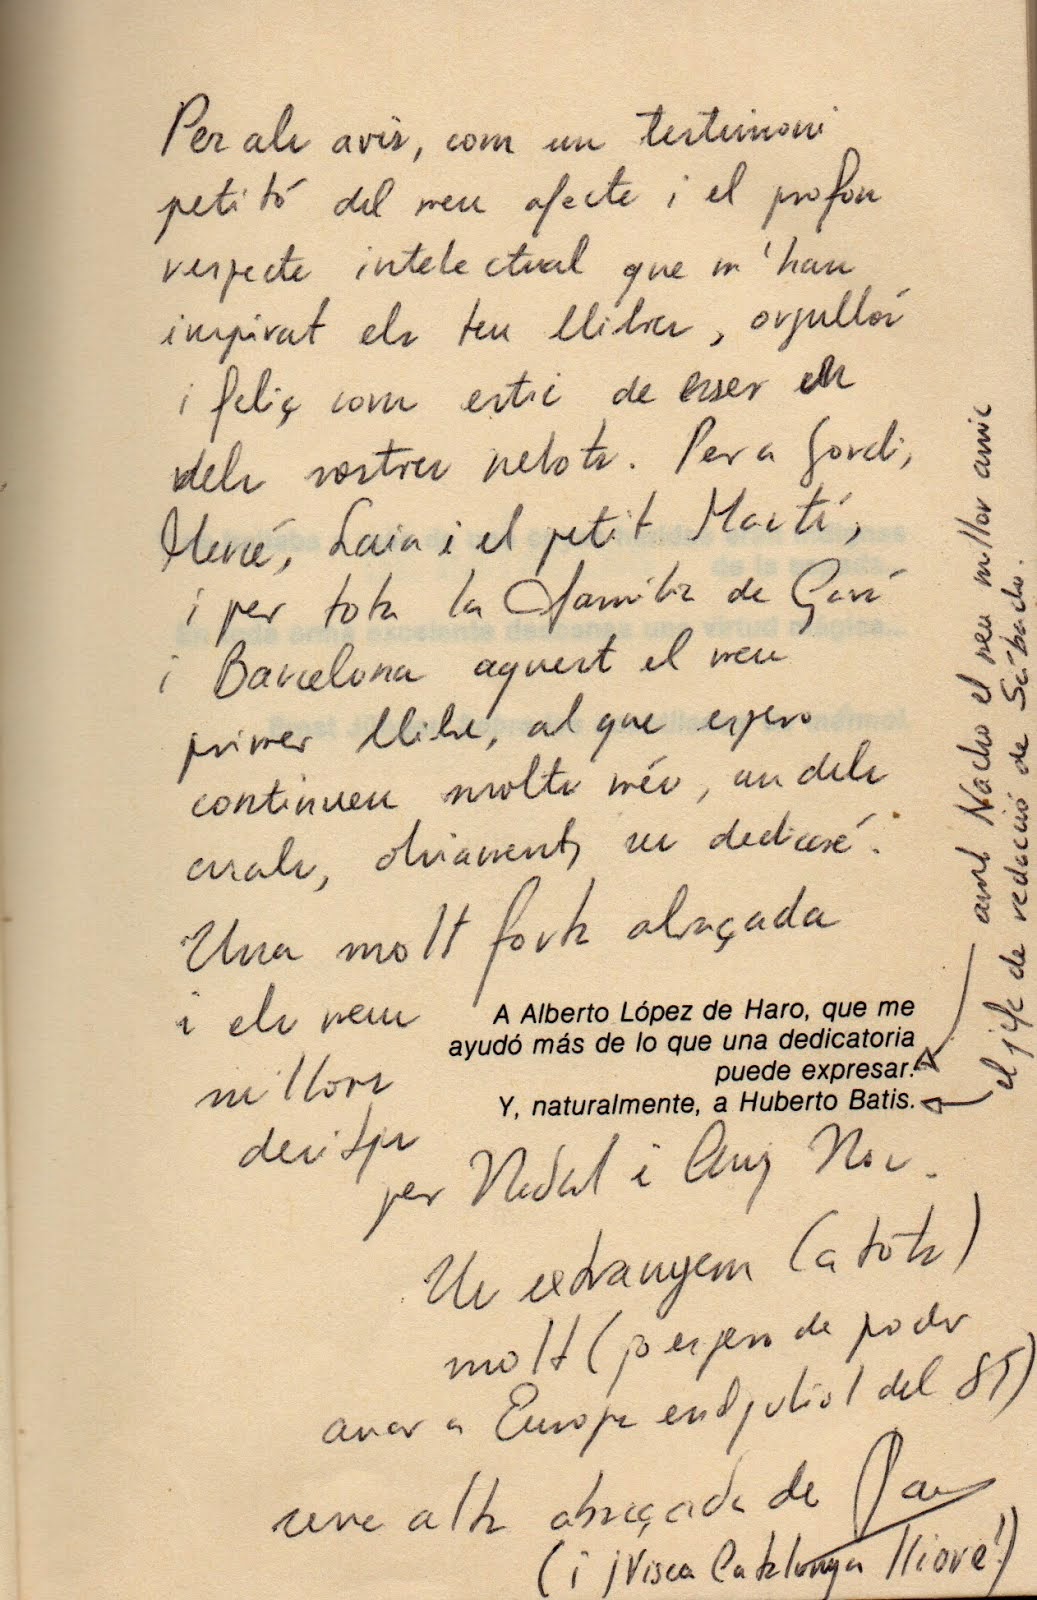 Per als avis, com un testimoni
petitó del meu afecte i el profon
respecte intelectual que m'han
inspirat els teu llibres, orgullós
i feliç com estic de esser un
dels vostres nebots. Per a Jordi,
Mercé, Laia i el petit Martí,
i per tota la família de Gavá
i Barcelona aquest el meu
primer llibre, al que espero
continuen molts més, un dels
cuals, obviament, us dedicaré.
Una molt forta abraçada
i els meus
millors
desitjs
per Nadal i Any Nou.
A Alberto López de Haro, que me
ayudó más de lo que una dedicatoria
puede expresar.
Y, naturalmente, a Huberto Batis.
amb Nacho el meu millor amic
el jefe de redacció de Sábado.
Us extranyem (a tots)
molt (jo espero de poder
anar a Europa en juliol del 85)
abraçada de Pau
(i ¡Visca Catalunya lliore!)